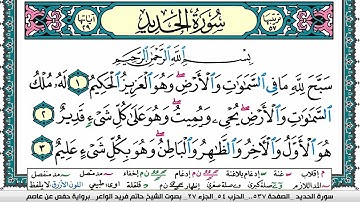 سُورَةُ الْحَدِيدِ
ترتيبها ٥٧
آياتها ٢٩
بِسْمِ ٱللَّهِ ٱلرَّحْمَٰنِ ٱلرَّحِيمِ
سَبَّحَ لِلَّهِ مَا فِي ٱلسَّمَٰوَٰتِ وَٱلْأَرْضِ ۖ وَهُوَ ٱلْعَزِيزُ ٱلْحَكِيمُ ١ لَهُۥ مُلْكُ
ٱلسَّمَٰوَٰتِ وَٱلْأَرْضِ ۖ يُحْىِۦ وَيُمِيتُ ۖ وَهُوَ عَلَىٰ كُلِّ شَىْءٍ قَدِيرٌ ٢
هُوَ ٱلْأَوَّلُ وَٱلْءَاخِرُ وَٱلظَّٰهِرُ وَٱلْبَاطِنُ ۖ وَهُوَ بِكُلِّ شَىْءٍ عَلِيمٌ ٣
سورة الحديد الصفحة ٥٣٧ الحزب ٥٤ الجزء ٢٧ بصوت الشيخ حاتم فريد الواعر رواية حفص عن عاصم